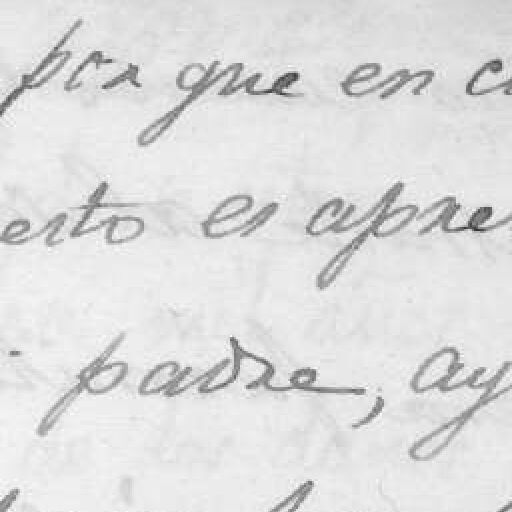 por que en
esto es apre
padre, ay